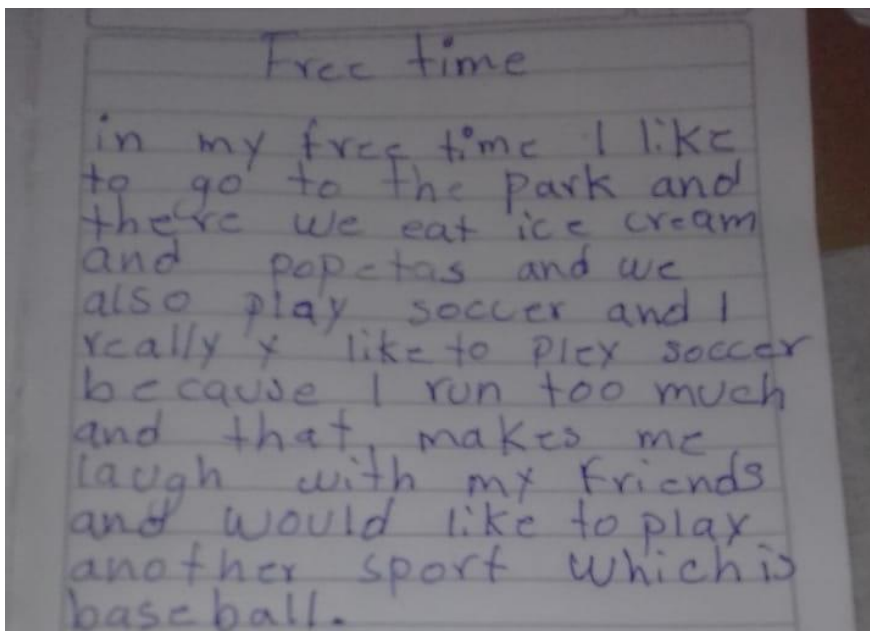 Free time
in my free time I like
to go to the park and
there we eat ice cream
and popetas and we
also play soccer and I
really y like to pley soccer
because I run too much
and that makes me
laugh with my friends
and would like to play
another sport which is
baseball.